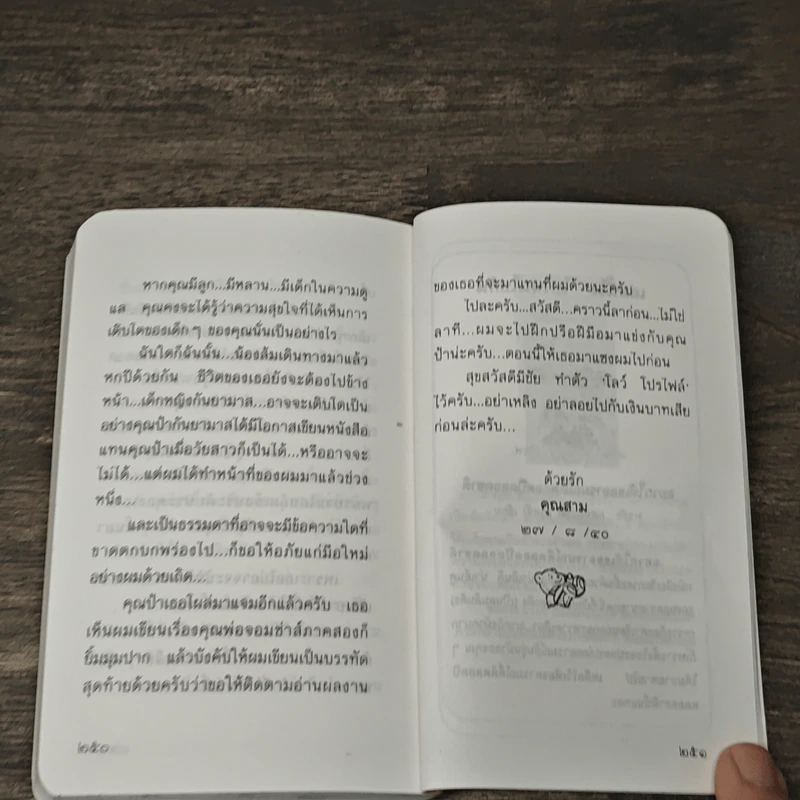 หากคุณมีลูก...มีหลาน...มีเด็กในความดู
แล คุณคงจะได้รู้ว่าความสุขใจที่ได้เห็นการ
เติบโตของเด็ก ๆ ของคุณนั่นเป็นอย่างไร
ฉันใดก็ฉันนั้น...น้องส้มเดินทางมาแล้ว
หกปีด้วยกัน ชีวิตของเธอยังจะต้องไปข้าง
หน้า...เด็กหญิงกันยามาส...อาจจะเติบโตเป็น
อย่างคุณป้ากันยามาสได้มีโอกาสเขียนหนังสือ
แทนคุณป้าเมื่อวัยสาวก็เป็นได้...หรืออาจจะ
ไม่ได้...แต่ผมได้ทำหน้าที่ของผมมาแล้วช่วง
หนึ่ง...
และเป็นธรรมดาที่อาจจะมีข้อความใดที่
ขาดตกบกพร่องไป...ก็ขอให้อภัยแก่มือใหม่
อย่างผมด้วยเถิด...
คุณป้าเธอโผล่มาแจมอีกแล้วครับ เธอ
เห็นผมเขียนเรื่องคุณพ่อจอมซ่าส์ภาคสองก็
ยิ้มมุมปาก แล้วบังคับให้ผมเขียนเป็นบรรทัด
สุดท้ายด้วยครับว่าขอให้ติดตามอ่านผลงาน
๒๕๐
ของเธอที่จะมาแทนที่ผมด้วยนะครับ
ไปละครับ...สวัสดี...คราวนี้ลาก่อน...ไม่ใช่
ลาที...ผมจะไปฝึกปรือฝีมือมาแข่งกับคุณ
ป้าน่ะครับ...ตอนนี้ให้เธอมาแซงผมไปก่อน
สุขสวัสดีมีชัย ทำตัว 'โลว์ โปรไฟล์'
ไว้ครับ...อย่าเหลิง อย่าลอยไปกับเงินบาทเสีย
ก่อนล่ะครับ...
ด้วยรัก
คุณสาม
๒๗ / ๘ /๔๐
๒๕๑